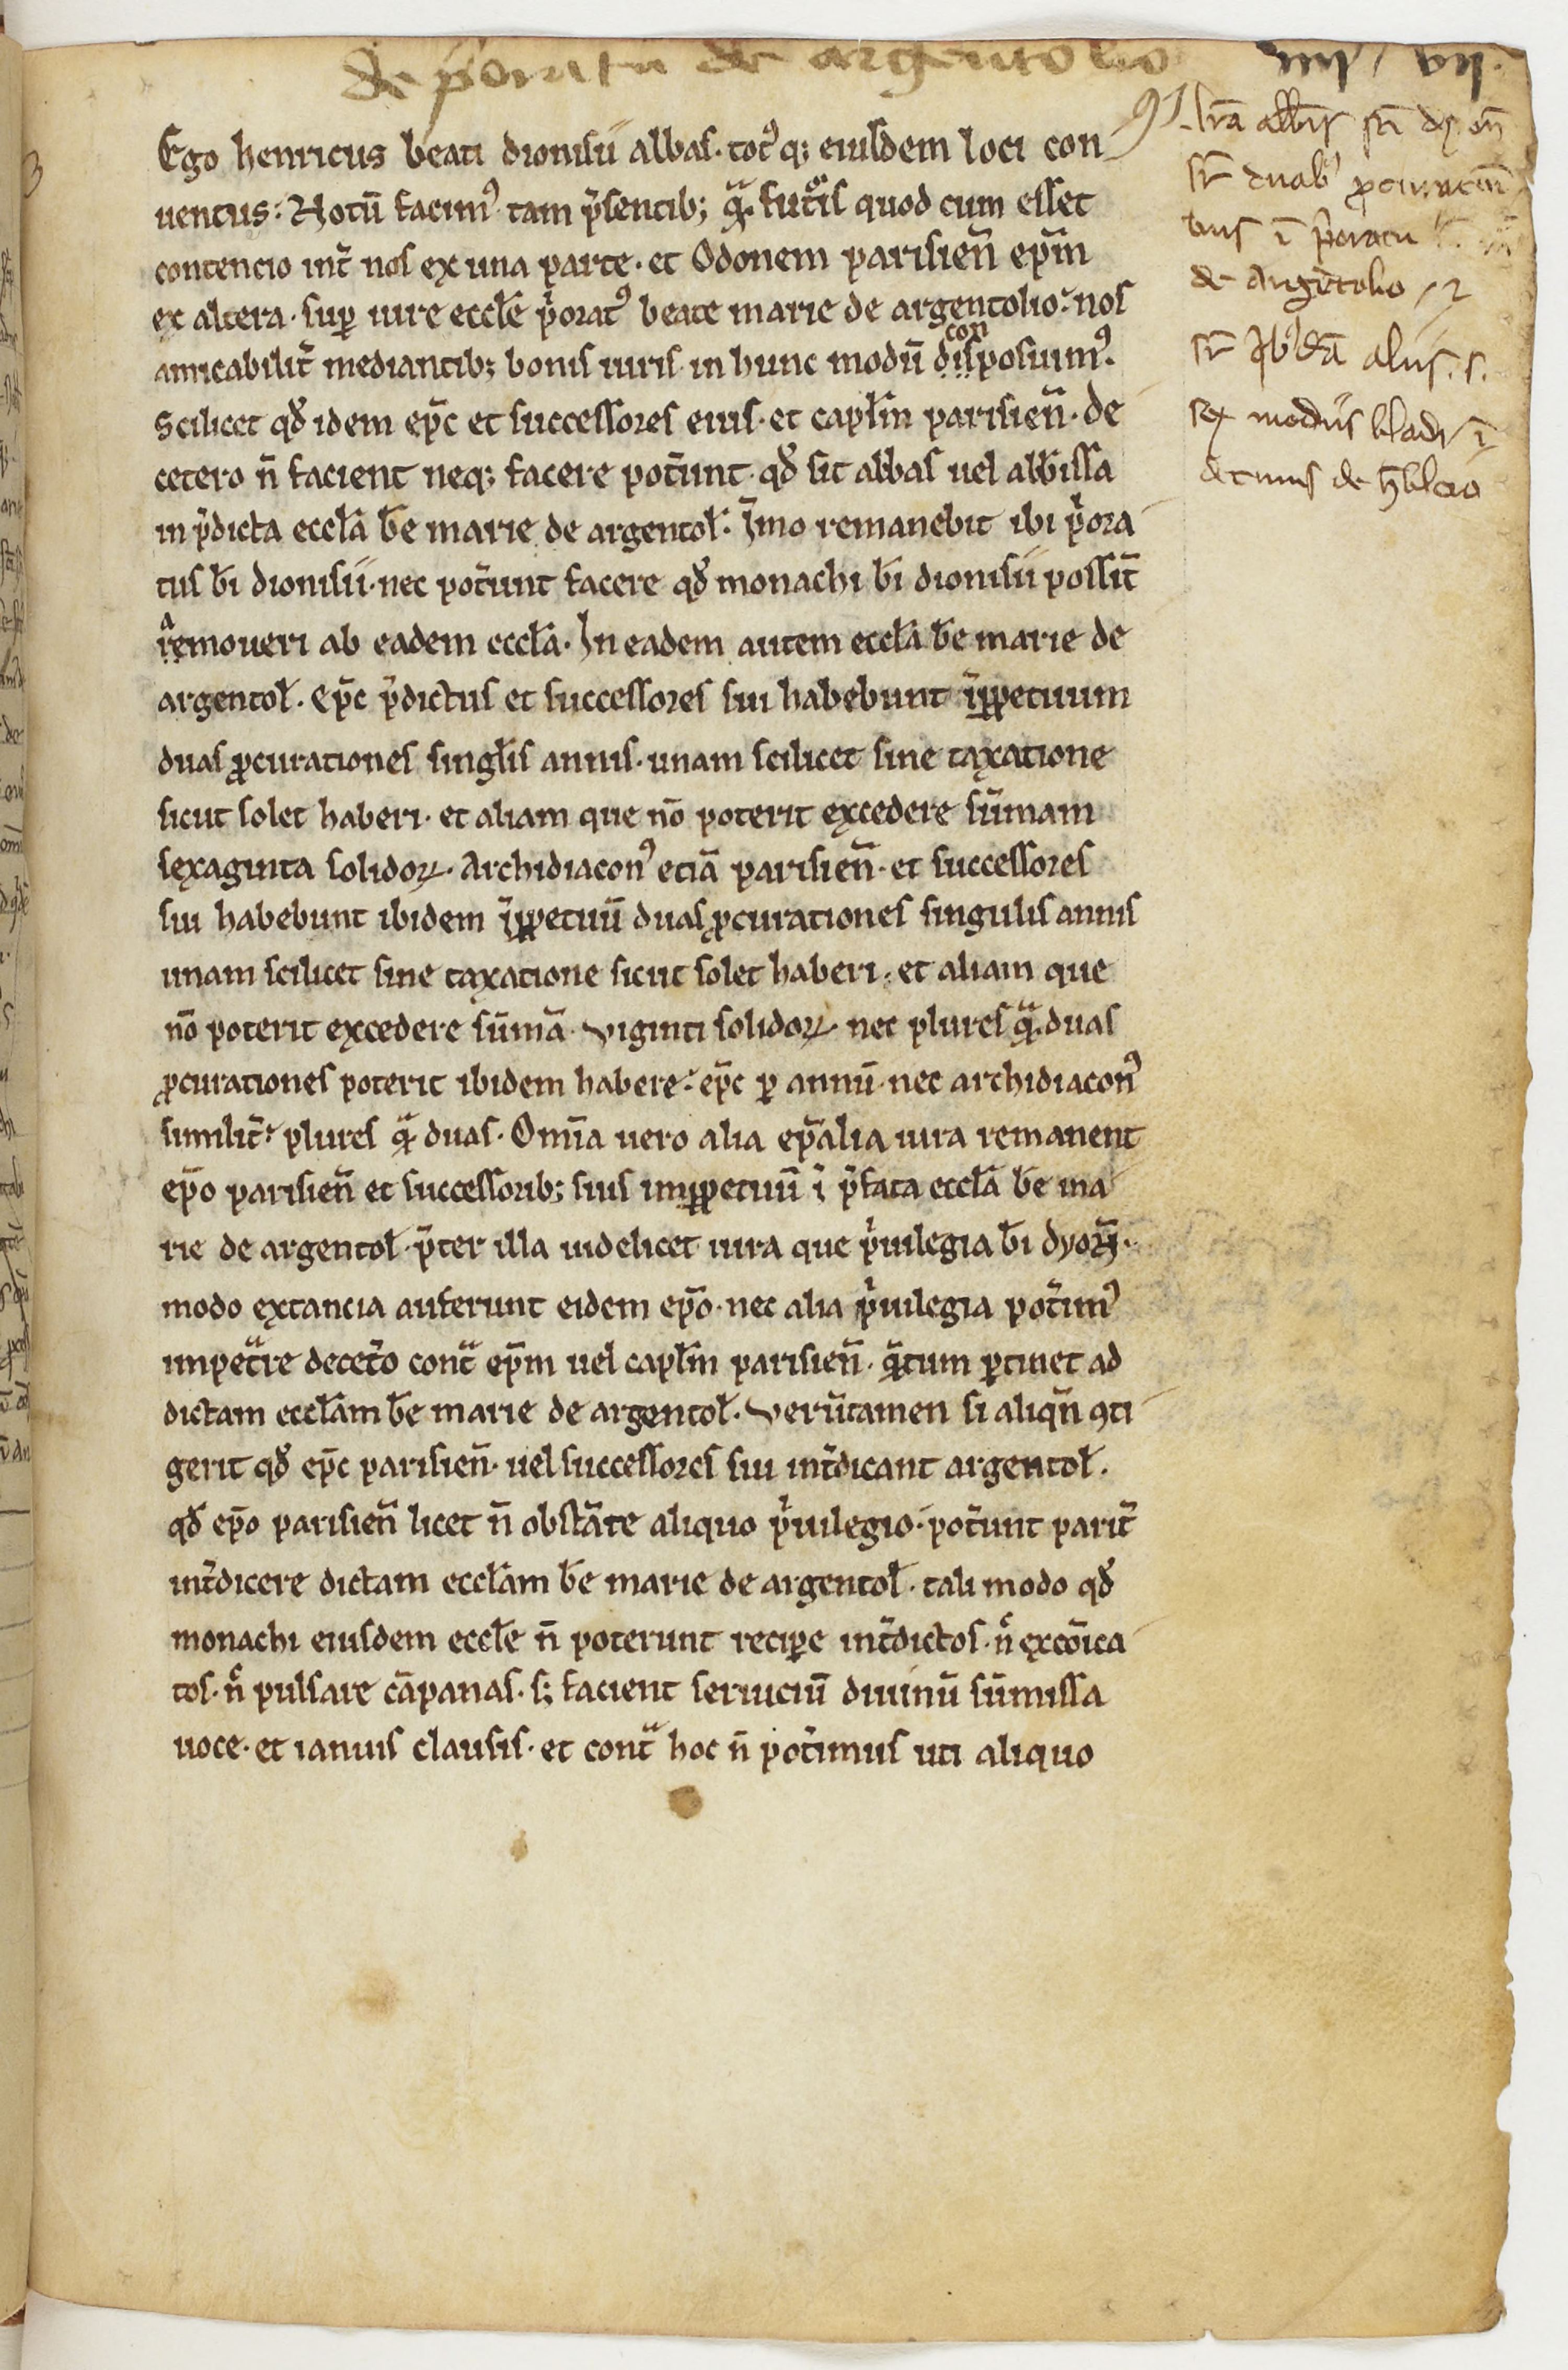 de p̄oratu de argentolio
iiij / vij.
Ego henricus beati dionisii abbas. totꝰq; eiusdem loci con
uentus: Notū facimꝰ tam p̄sentib; qᵃ. futᵒis quod cum esset
contencio int̄ nos ex una parte. et Odonem parisien̄ ep̄m
ex altera. suꝑ iure eccłe pͥoratꝰ beate marie de argentolio: nos
con
amicabilit̄ mediantib; bonis uiris in hunc modū disposuimꝰ.
Scilicet qđ idem ep̄c et successores eius. et capłm parisien̄. de
cetero n̄ facient neq; facere pot̄unt. qđ sit abbas uel abb̄issa
in p̄dicta eccła b̄e marie de argentoł. Īmo remanebit ibi pͥora
tus b̄i dionisii. nec pot̄unt facere qđ monachi b̄i dionisii possīt
remoueri ab eadem eccła. In eadem autem eccła b̄e marie de
argentoł. Ep̄c p̄dictus et successores sui habebunt īꝑpetuum
duas ꝓcurationes singłis annis. unam scilicet sine taxatione
sicut solet haberi. et aliam que nō poterit excedere sūmam
sexaginta solidoꝝ. Archidiaconꝰ eciā parisien̄. et successores
sui habebunt ibidem īꝑpetuū duas ꝓcurationes singulis annis
unam scilicet sine taxatione sicut solet haberi. et aliam que
nō poterit excedere sūmā. viginti solidoꝝ. nec plures qᵃ. duas
ꝓcurationes poterit ibidem habere: ep̄c ꝑ annū. nec archidiaconꝰ
similit̄: plures qᵃ duas. Om̄ia uero alia ep̄alia iura remanent
ep̄o parisien̄ et successorib; suis imꝑpetuū ī p̄fata eccła b̄e ma
rie de argentoł. p̄ter illa uidelicet iura que pͥuilegia b̄i dyoñ.
modo extancia auferunt eidem ep̄o. nec alia pͥuilegia pot̄imꝰ
impetᵃre decet̄o contᵃ ep̄m uel capłm parisien̄. qᵃtum ꝑtinet ad
dictam eccłam b̄e marie de argentoł. verūtamen si aliqn̄ ꝯti
gerit qđ ep̄c parisien̄. uel successores sui int̄dicant argentoł.
qđ ep̄o parisien̄ licet n̄ obstāte aliquo pͥuilegio. pot̄unt parit̄
int̄dicere dictam eccłam b̄e marie de argentoł. tali modo qđ
monachi eiusdem eccłe n̄ poterunt reciꝑe int̄dictos. n̄ excōica
tos. n̄ pulsare cāpanas. s; facient seruiciū diuinū sūmissa
uoce. et ianuis clausis. et contᵃ hoc n̄ pot̄imus uti aliquo
lr̄a abb̄is sc̄i
sr̄ duabꝰ ꝓcuracōni
bus ī p̄oratu
de Argētolio / ⁊
sr̄ qͥbꝰdā aliis. s.
sex modiis bladi ī
decimis de